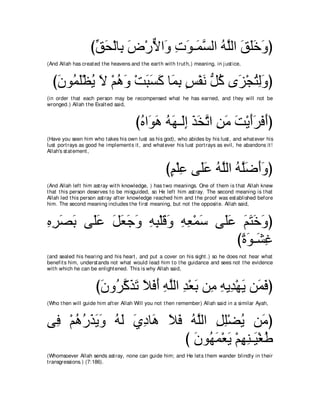 (وَخَلَقَ اللَّهُ السَّمَـوَتِ وَالاٌّرْضَ بِالْحَقِّ)
(And Allah has created the heavens and the earth with truth,) meaning, in justice,
(وَلِتُجْزَى كُلُّ نَفْسٍ بِمَا كَسَبَتْ وَهُمْ لاَ يُظْلَمُونَ)
(in order that each person may be recompensed what he has earned, and they will not be wronged.) Allah the Exalted said,
(أَفَرَأَيْتَ مَنِ اتَّخَذَ إِلَـهَهُ هَوَاهُ)
(Have you seen him who takes his own lust as his god), who abides by his lust, and whatever his lust portrays as good he implements it, and whatever his lust portrays as evil, he abandons it! Allah's statement,
(وَأَضَلَّهُ اللَّهُ عَلَى عِلْمٍ)
(And Allah left him astray with knowledge, ) has two meanings. One of them is that Allah knew that this person deserves to be misguided, so He left him astray. The second meaning is that Allah led this person astray after knowledge reached him and the proof was established before him. The second meaning includes the first meaning, but not the opposite. Allah said,
(وَخَتَمَ عَلَى سَمْعِهِ وَقَلْبِهِ وَجَعَلَ عَلَى بَصَرِهِ غِشَـوَةً)
(and sealed his hearing and his heart, and put a cover on his sight.) so he does not hear what benefits him, understands not what would lead him to the guidance and sees not the evidence with which he can be enlightened. This is why Allah said,
(فَمَن يَهْدِيهِ مِن بَعْدِ اللَّهِ أَفَلاَ تَذَكَّرُونَ)
(Who then will guide him after Allah Will you not then remember) Allah said in a similar Ayah,
(مَن يُضْلِلِ اللَّهُ فَلاَ هَادِيَ لَهُ وَيَذَرُهُمْ فِى طُغْيَـنِهِمْ يَعْمَهُونَ )
(Whomsoever Allah sends astray, none can guide him; and He lets them wander blindly in their transgressions.) (7:186).